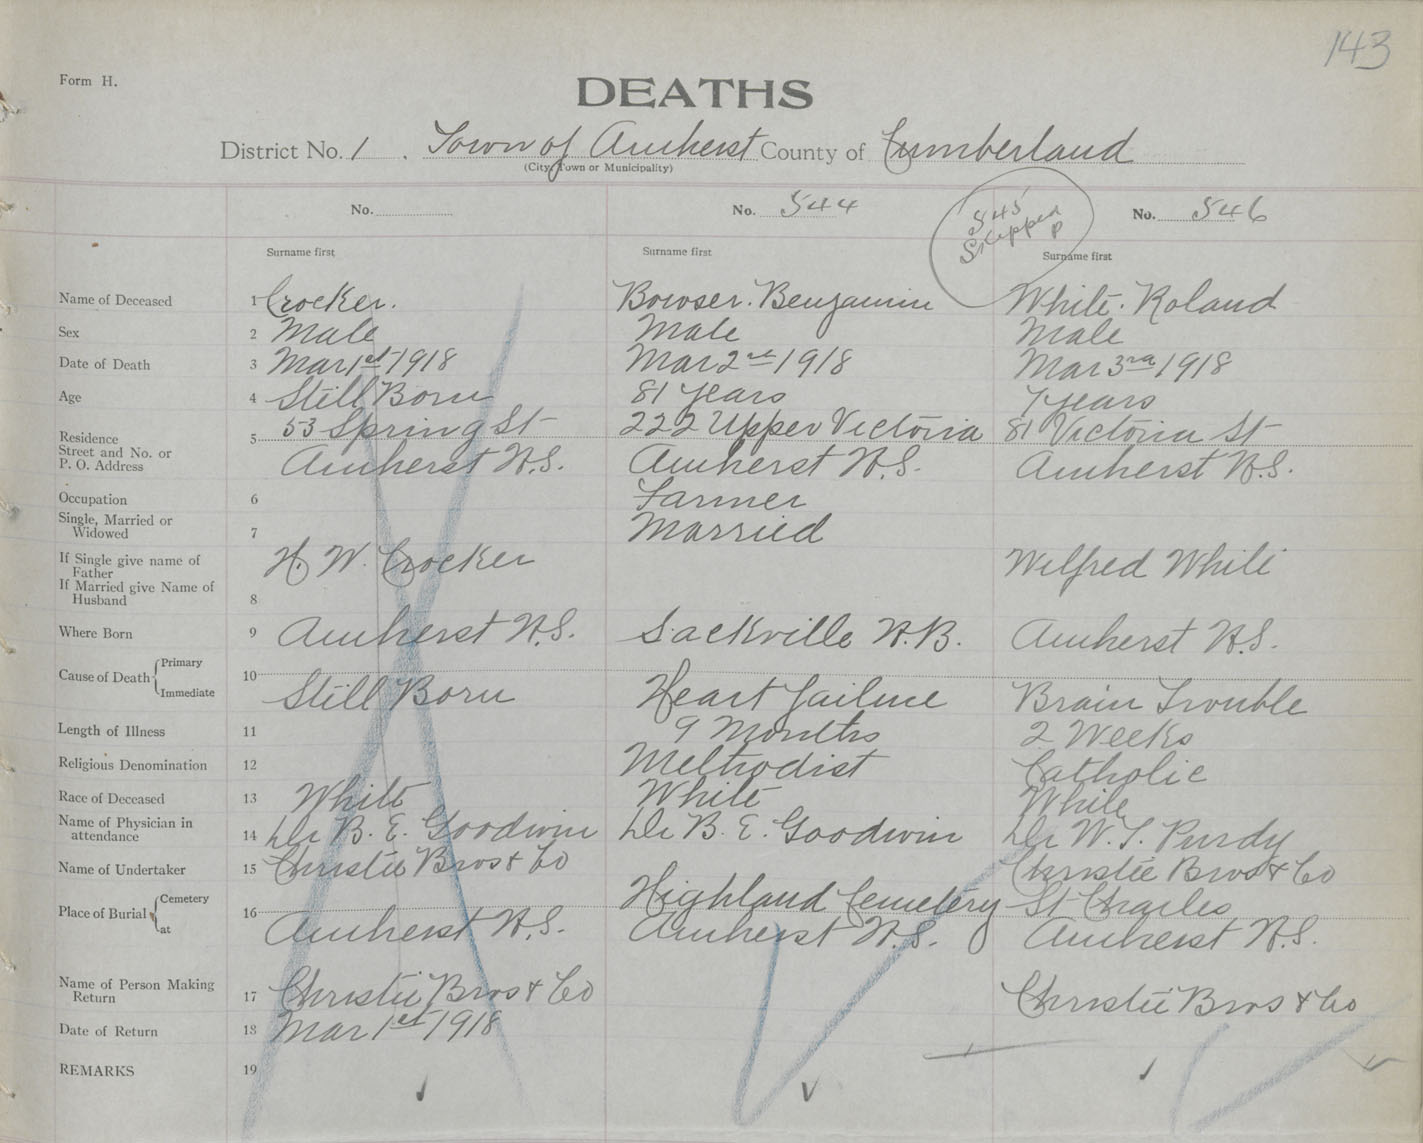 143
Form H.
DEATHS
District No. 1 . Town of Amherst County of Cumberland
(City, Town or Municipality)
No. No. 544 545 Skipped P No. 546
Surname first Surname first Surname first
Name of Deceased 1 Crocker. Bowser. Benjamin White. Roland
Sex 2 Male Male Male
Date of Death 3 Mar 1st 1918 Mar 2nd 1918 Mar 3rd 1918
Age 4 Still Born 81 years 7 years
Residence Street and No. or P. O. Address 5 53 Spring St 222 Upper Victoria 81 Victoria St
Amherst N.S. Amherst N.S. Amherst N.S.
Occupation 6 Farmer
Single, Married or Widowed 7 Married
If Single give name of Father H. W. Crocker Wilfred White
If Married give Name of Husband 8
Where Born 9 Amherst N.S. Sackville N.B. Amherst N.S.
Cause of Death Primary 10
Immediate Still Born Heart failure Brain Trouble
Length of Illness 11 9 Months 2 Weeks
Religious Denomination 12 Methodist Catholic
Race of Deceased 13 White White White
Name of Physician in attendance 14 Dr B. E. Goodwin Dr B. E. Goodwin Dr W. T. Purdy
Name of Undertaker 15 Christie Bros & Co Christie Bros & Co
Place of Burial Cemetery 16 Highland Cemetery St Charles
at Amherst N.S. Amherst N.S. Amherst N.S.
Name of Person Making Return 17 Christie Bros & Co Christie Bros & Co
Date of Return 18 Mar 1st 1918
REMARKS 19